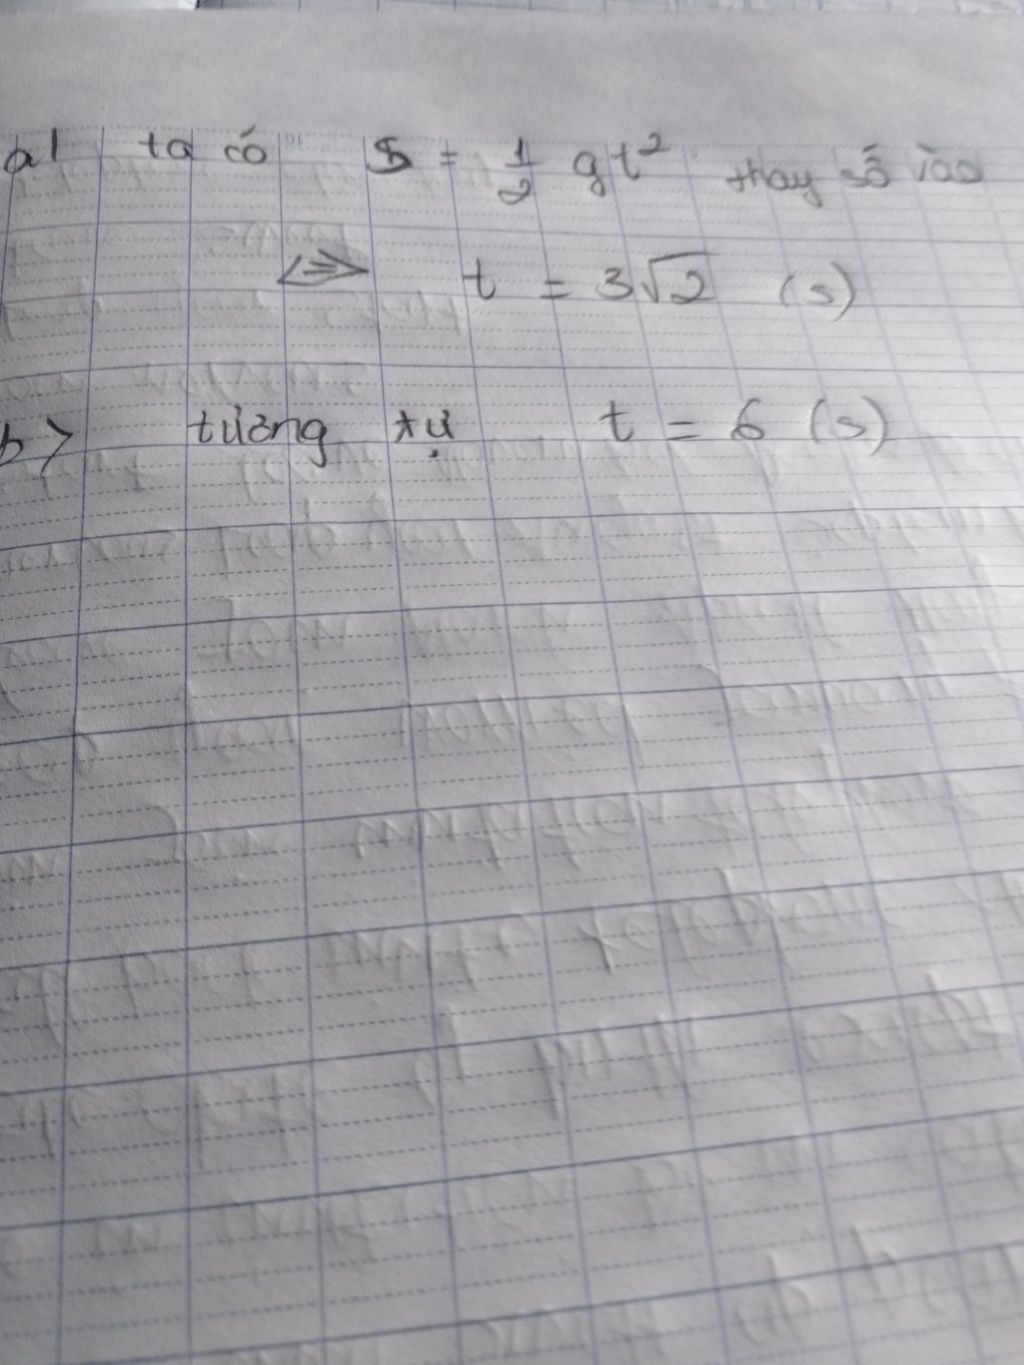 a) ta có S = 1/2 gt² thay số vào
<=> t = 3√2 (s)
b> tương tự t = 6 (s)